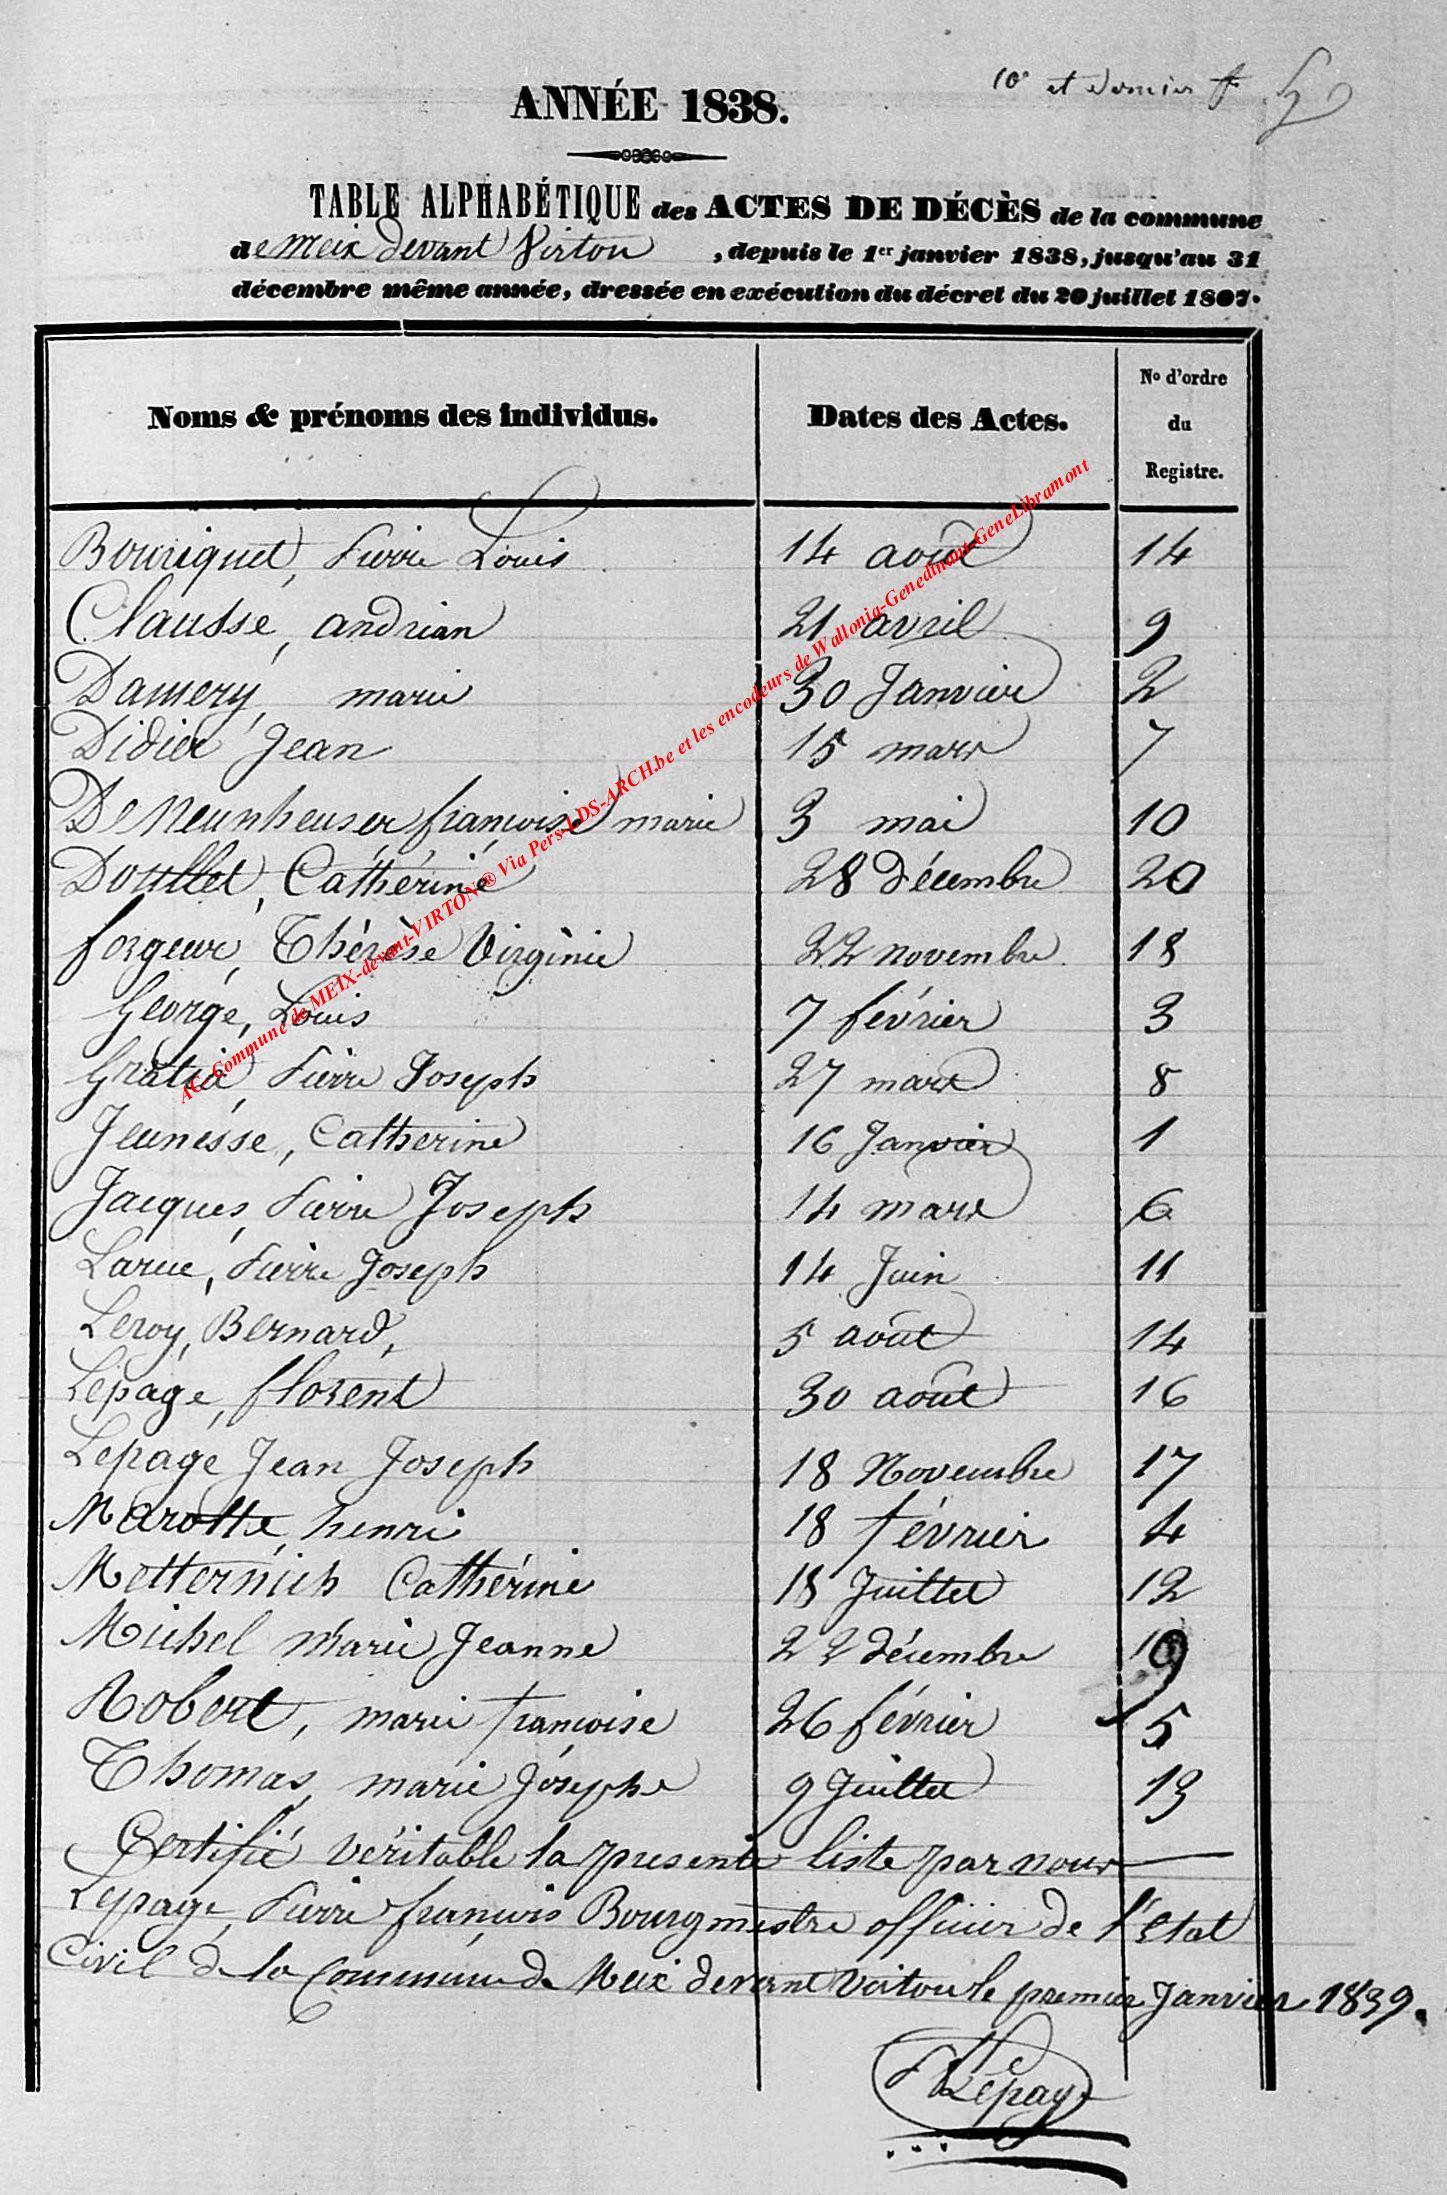 10e et dernier f
ANNÉE 1838.
TABLE ALPHABÉTIQUE des ACTES DE DÉCÈS de la commune
de Meix devant Virton , depuis le 1er janvier 1838, jusqu'au 31
décembre même année, dressée en exécution du décret du 20 juillet 1807.
Noms & prénoms des individus. Dates des Actes. No d'ordre du Registre.
Bouriquet, Pierre Louis 14 août 14
Claussé, andrian 21 avril 9
Damery, marie 30 Janvier 2
Didier Jean 15 mars 7
De Neunheuser françoise marie 3 mai 10
Doullet, Cathérine 28 décembre 20
forgeur, Thérèse Virginie 22 novembre 18
George, Louis 7 février 3
Gratia, Pierre Joseph 27 mars 8
Jeunesse, Catherine 16 Janvier 1
Jacques, Pierre Joseph 14 mars 6
Larue, Pierre Joseph 14 Juin 11
Leroy, Bernard, 5 août 14
Lepage, florent 30 août 16
Lepage Jean Joseph 18 Novembre 17
Marotte, henri 18 février 4
Metternich Cathérine 18 Juillet 12
Michel Marie Jeanne 22 décembre 19
Robert, marie françoise 26 février 5
Thomas, marie Josephe 9 Juillet 13
Certifié véritable la presente liste par nous
Lepage, Pierre françois Bourgmestre officier de l'Etat
Civil de la Commune de Meix devant Virton le premier Janvier 1839.
Lepage
AC-Commune de MEIX-devant-VIRTON® Via Pers-LDS-ARCH.be et les encodeurs de Wallonia-Genedinant-GeneLibramont